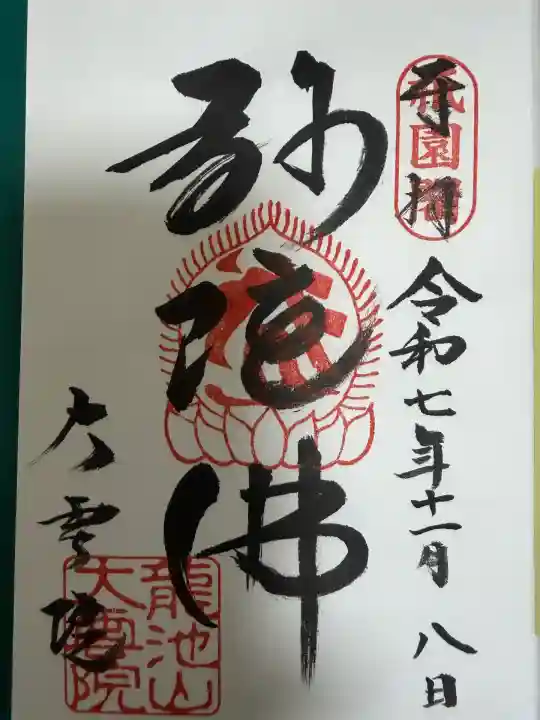 奉拝
祇園閣
令和七年十一月八日
弥陀佛
大雲院
龍池山
大雲院